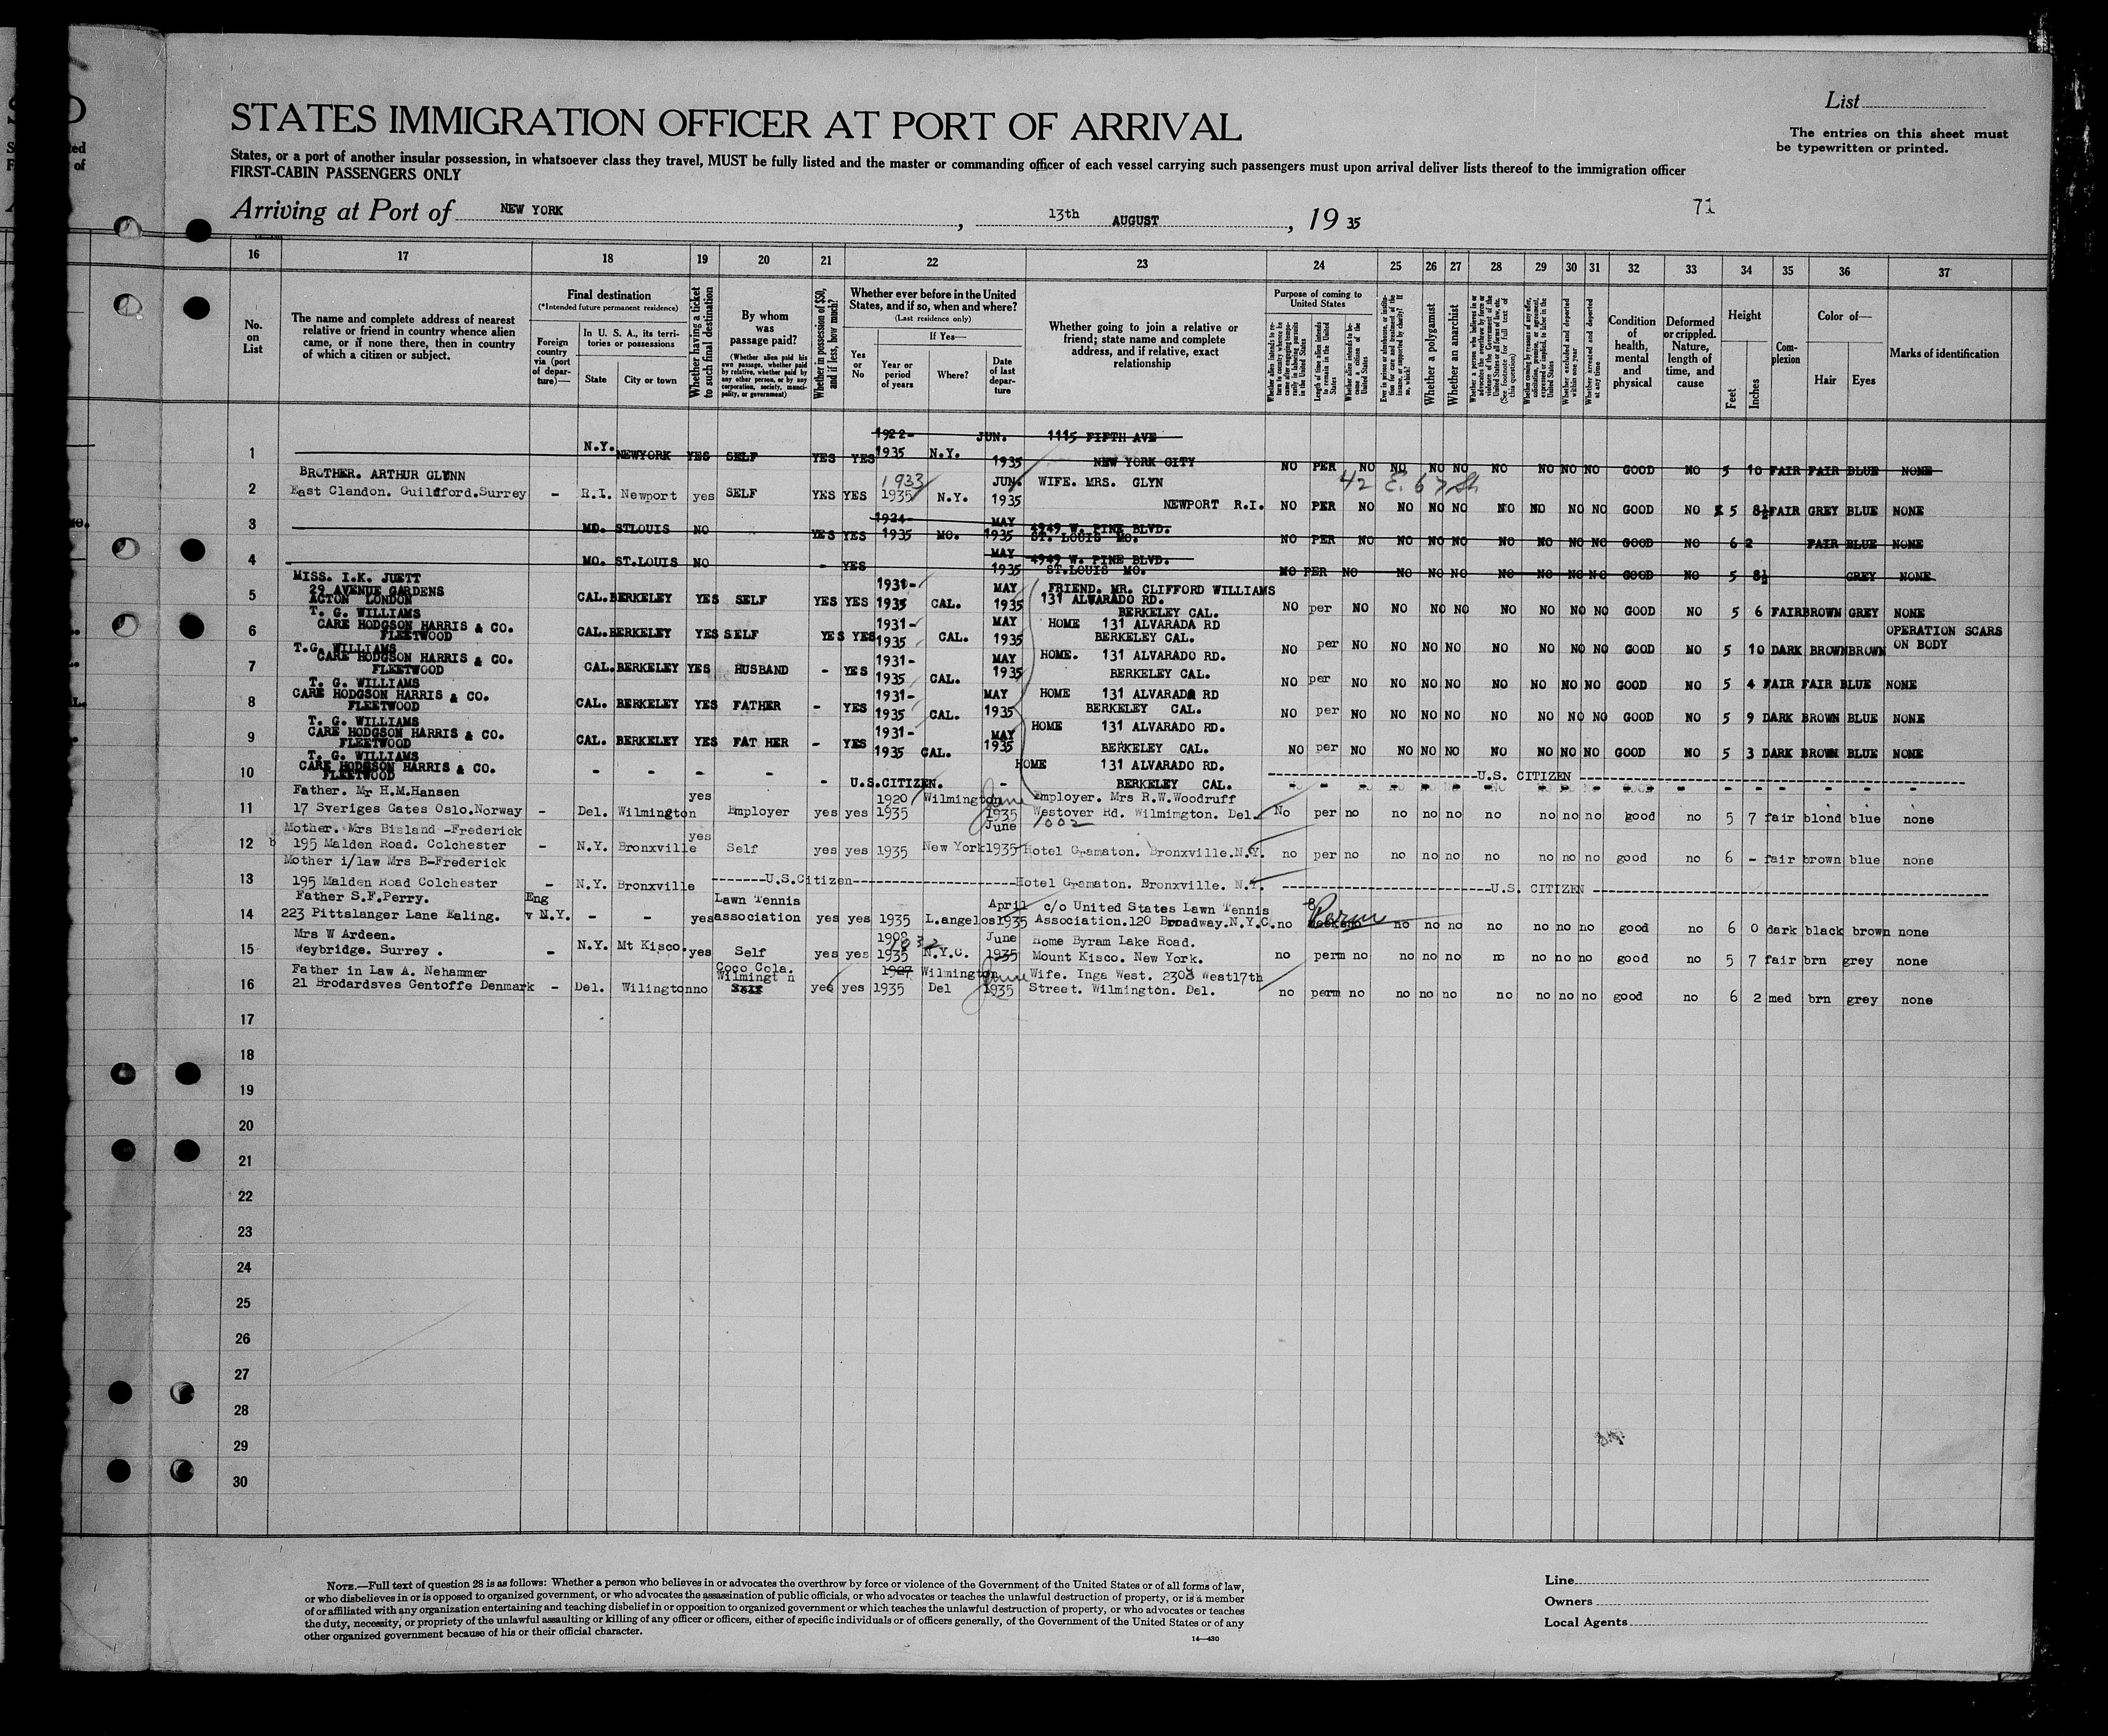 List
STATES IMMIGRATION OFFICER AT PORT OF ARRIVAL
The entries on this sheet must
be typewritten or printed.
States, or a port of another insular possession, in whatsoever class they travel, MUST be fully listed and the master or commanding officer of each vessel carrying such passengers must upon arrival deliver lists thereof to the immigration officer
FIRST-CABIN PASSENGERS ONLY
Arriving at Port of NEW YORK, 13th AUGUST, 19 35
71
16 17 18 19 20 21 22 23 24 25 26 27 28 29 30 31 32 33 34 35 36 37
No. on List
The name and complete address of nearest relative or friend in country whence alien came, or if none there, then in country of which a citizen or subject.
Final destination
(*Intended future permanent residence)
Foreign country via (port of departure)—
In U. S. A., its territories or possessions
State
City or town
Whether having a ticket to such final destination
By whom was passage paid?
(Whether alien paid his own passage, whether paid by relative, whether paid by any other person, or by any corporation, society, municipality, or government)
Whether in possession of $50, and if less, how much?
Whether ever before in the United States, and if so, when and where?
(Last residence only)
Yes or No
If Yes—
Year or period of years
Where?
Date of last departure
Whether going to join a relative or friend; state name and complete address, and if relative, exact relationship
Purpose of coming to United States
Length of time alien intends to remain in the United States
Whether alien intends to become a citizen of the United States
Whether a polygamist
Whether an anarchist
Whether excluded and deported within one year
Whether arrested and deported at any time
Condition of health, mental and physical
Deformed or crippled. Nature, length of time, and cause
Height
Feet
Inches
Complexion
Color of—
Hair
Eyes
Marks of identification
1922- JUN. 1115 FIFTH AVE
1 N.Y. NEWYORK YES SELF YES YES 1935 N.Y. 1935 NEW YORK CITY NO PER NO NO NO NO NO NO NO NO GOOD NO 5 10 FAIR FAIR BLUE NONE
BROTHER. ARTHUR GLYNN 1933 JUN. WIFE. MRS. GLYN 42 E. 67 St
2 East Clandon. Guildford.Surrey - R.I. Newport yes SELF YES YES 1935 N.Y. 1935 NEWPORT R.I. NO PER NO NO NO NO NO NO NO NO GOOD NO 5 8½ FAIR GREY BLUE NONE
1924- MAY 4949 W. PINE BLVD.
3 MD. STLOUIS NO YES YES 1935 MO. 1935 ST. LOUIS MO. NO PER NO NO NO NO NO NO NO NO GOOD NO 6 2 FAIR BLUE NONE
MAY 4949 W. PINE BLVD.
4 MO. ST.LOUIS NO - YES 1935 ST.LOUIS MO. NO PER NO NO NO NO NO NO NO NO GOOD NO 5 8½ GREY NONE
MISS. I.K. JUETT 1931- MAY FRIEND. MR. CLIFFORD WILLIAMS
29 AVENUE GARDENS
5 ACTON LONDON CAL. BERKELEY YES SELF YES YES 1935 CAL. 1935 131 ALVARADO RD. BERKELEY CAL. NO per NO NO NO NO NO NO NO NO GOOD NO 5 6 FAIR BROWN GREY NONE
T. G. WILLIAMS 1931- MAY HOME 131 ALVARADA RD
CARE HODGSON HARRIS & CO. OPERATION SCARS
6 FLEETWOOD CAL. BERKELEY YES SELF YES YES 1935 CAL. 1935 BERKELEY CAL. NO per NO NO NO NO NO NO NO NO GOOD NO 5 10 DARK BROWN BROWN ON BODY
T.G. WILLIAMS 1931- MAY HOME. 131 ALVARADO RD.
CARE HODGSON HARRIS & CO.
7 FLEETWOOD CAL. BERKELEY YES HUSBAND - YES 1935 CAL. 1935 BERKELEY CAL. NO per NO NO NO NO NO NO NO NO GOOD NO 5 4 FAIR FAIR BLUE NONE
T. G. WILLIAMS 1931- MAY HOME 131 ALVARADA RD
CARE HODGSON HARRIS & CO.
8 FLEETWOOD CAL. BERKELEY YES FATHER - YES 1935 CAL. 1935 BERKELEY CAL. NO per NO NO NO NO NO NO NO NO GOOD NO 5 9 DARK BROWN BLUE NONE
T. G. WILLIAMS 1931- MAY HOME 131 ALVARADO RD.
CARE HODGSON HARRIS & CO.
9 FLEETWOOD CAL. BERKELEY YES FAT HER - YES 1935 CAL. 1935 BERKELEY CAL. NO per NO NO NO NO NO NO NO NO GOOD NO 5 3 DARK BROWN BLUE NONE
T. G. WILLIAMS HOME 131 ALVARADO RD.
CARE HODGSON HARRIS & CO.
10 FLEETWOOD - - - - - U.S.CITIZEN. - BERKELEY CAL. U.S. CITIZEN
Father. Mr H.M.Hansen yes 1920 Wilmington June Employer. Mrs R.W.Woodruff
11 17 Sveriges Gates Oslo.Norway - Del. Wilmington Employer yes yes 1935 1935 Westover Rd. Wilmimgton. Del. No per no no no no no no no no good no 5 7 fair blond blue none
Mother. Mrs Bisland -Frederick yes June 1002
12 195 Malden Road. Colchester - N.Y. Bronxville Self yes yes 1935 New York 1935 Hotel Gramaton. Bronxville.N.Y. no per no no no no no no no no good no 6 - fair brown blue none
Mother i/law Mrs B-Frederick
13 195 Malden Road Colchester - N.Y. Bronxville -------U.S.Citizen------- Hotel Gramaton. Bronxville. N.Y. U.S. CITIZEN
Father S.F.Perry. Eng Lawn Tennis April c/o United States Lawn Tennis 8 Perm
14 223 Pittslanger Lane Ealing. v N.Y. - - yes association yes yes 1935 L.angelos 1935 Association.120 Broadway.N.Y.C. no weeks no no no no no no no no good no 6 0 dark black brown none
Mrs W Ardeen. 1908 1932 June Home Byram Lake Road.
15 Weybridge. Surrey . - N.Y. Mt Kisco. yes Self yes yes 1935 N.Y.C. 1935 Mount Kisco. New York. no perm no no no no no no no no good no 5 7 fair brn grey none
Father in Law A. Nehammer Coco Cola. Wilmingt n 1927 Wilmington June Wife. Inga West. 2308 West17th
16 21 Brodardsves Gentoffe Denmark - Del. Wilington no Self yes yes 1935 Del 1935 Street. Wilmington. Del. no perm no no no no no no no no good no 6 2 med brn grey none
17
18
19
20
21
22
23
24
25
26
27
28
29
30
NOTE.—Full text of question 28 is as follows: Whether a person who believes in or advocates the overthrow by force or violence of the Government of the United States or of all forms of law,
or who disbelieves in or is opposed to organized government, or who advocates the assassination of public officials, or who advocates or teaches the unlawful destruction of property, or is a member
of or affiliated with any organization entertaining and teaching disbelief in or opposition to organized government or which teaches the unlawful destruction of property, or who advocates or teaches
the duty, necessity, or propriety of the unlawful assaulting or killing of any officer or officers, either of specific individuals or of officers generally, of the Government of the United States or of any
other organized government because of his or their official character.
14—430
Line
Owners
Local Agents